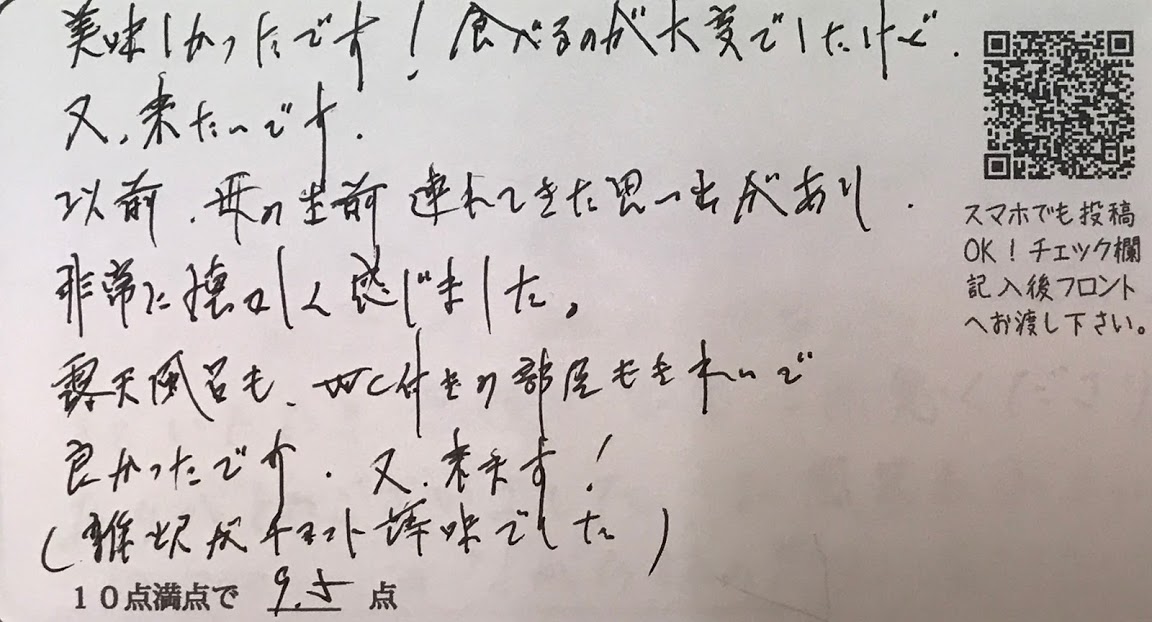 美味しかったです！食べるのが大変でしたけど.
又、来たいです.
以前、母の生前連れてきた思い出があり.
非常に懐かしく感じました。
露天風呂も、WC付きの部屋もきれいで
良かったです. 又、来ます！
(雑炊がチョット薄味でした)
10点満点で 9.5 点
スマホでも投稿
OK！チェック欄
記入後フロント
へお渡し下さい。